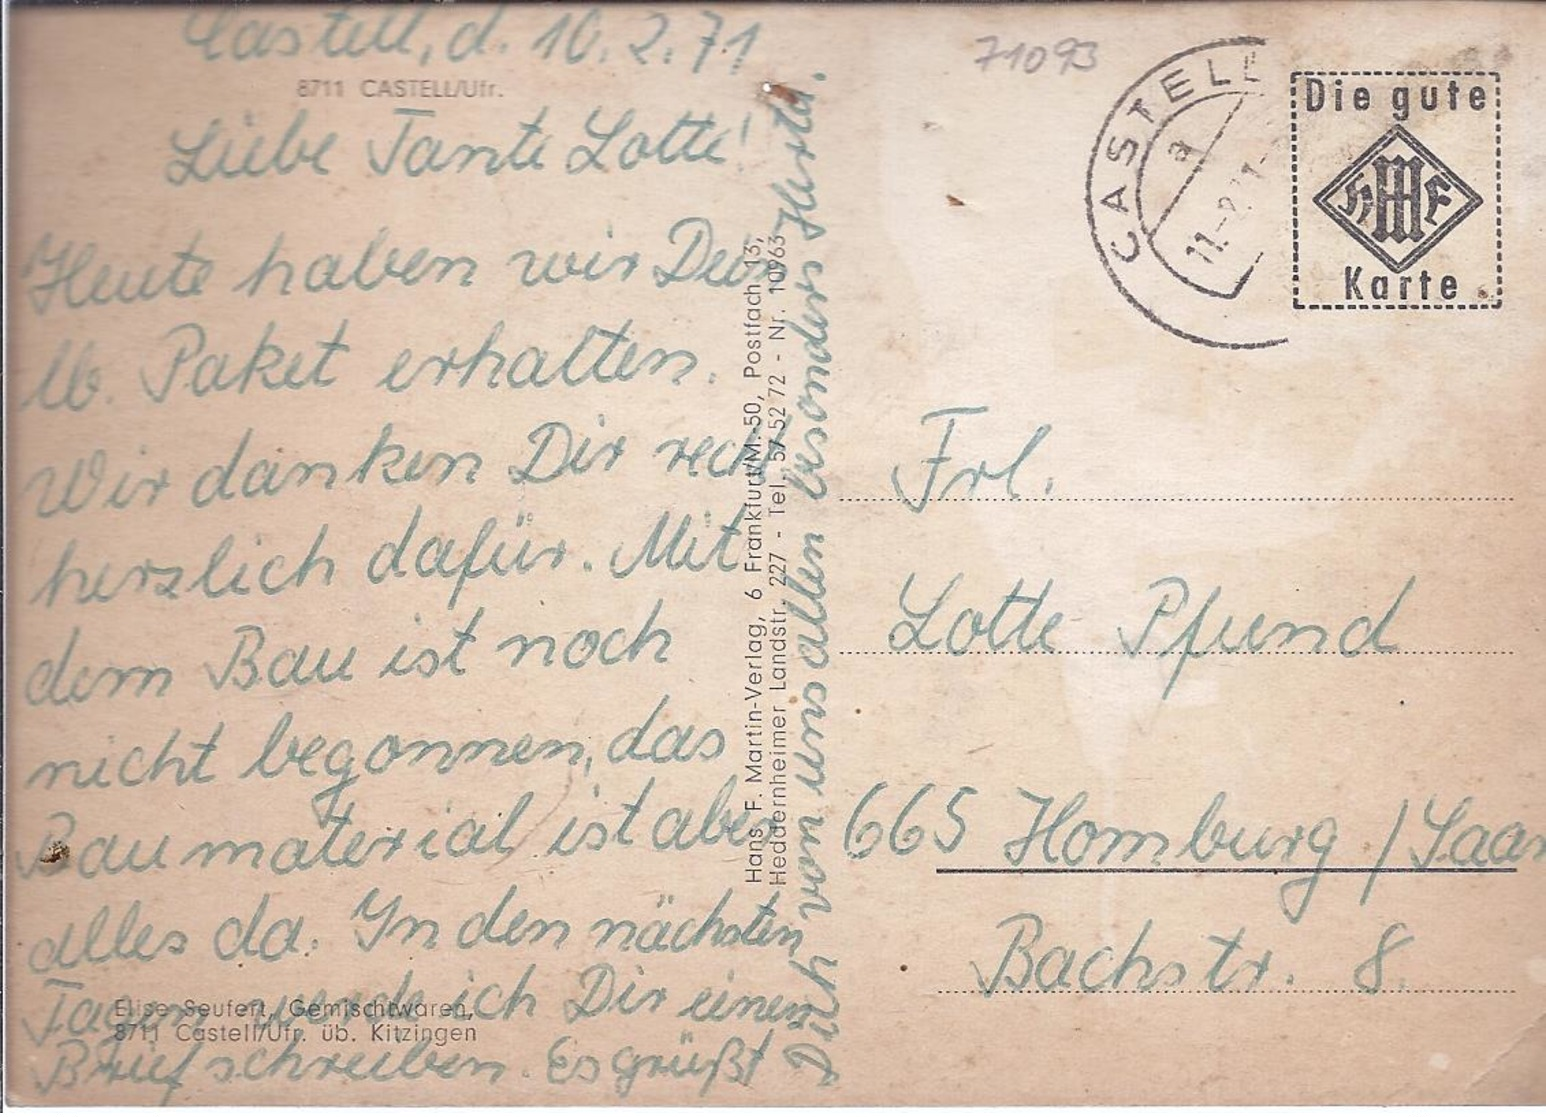 Castell, d. 10.2.71
8711 CASTELL/Ufr.
Liebe Tante Lotte!
Heute haben wir Dein
lb. Paket erhalten.
Wir danken Dir recht
herzlich dafür. Mit
dem Bau ist noch
nicht begonnen, das
Baumaterial ist aber
alles da. In den nächsten
Tagen werde ich Dir einen
Brief schreiben. Es grüßt
Dich von uns allen besonders Herta.
Elise Seufert, Gemischtwaren,
8711 Castell/Ufr. üb. Kitzingen
Hans F. Martin-Verlag, 6 Frankfurt/M.-50, Postfach 13,
Heddernheimer Landstr. 227 - Tel. 57 52 72 - Nr. 10963
71093
CASTELL
a
11.-2.71-
Die gute
HMF
Karte
Frl.
Lotte Pfund
665 Homburg /Saar
Bachstr. 8.